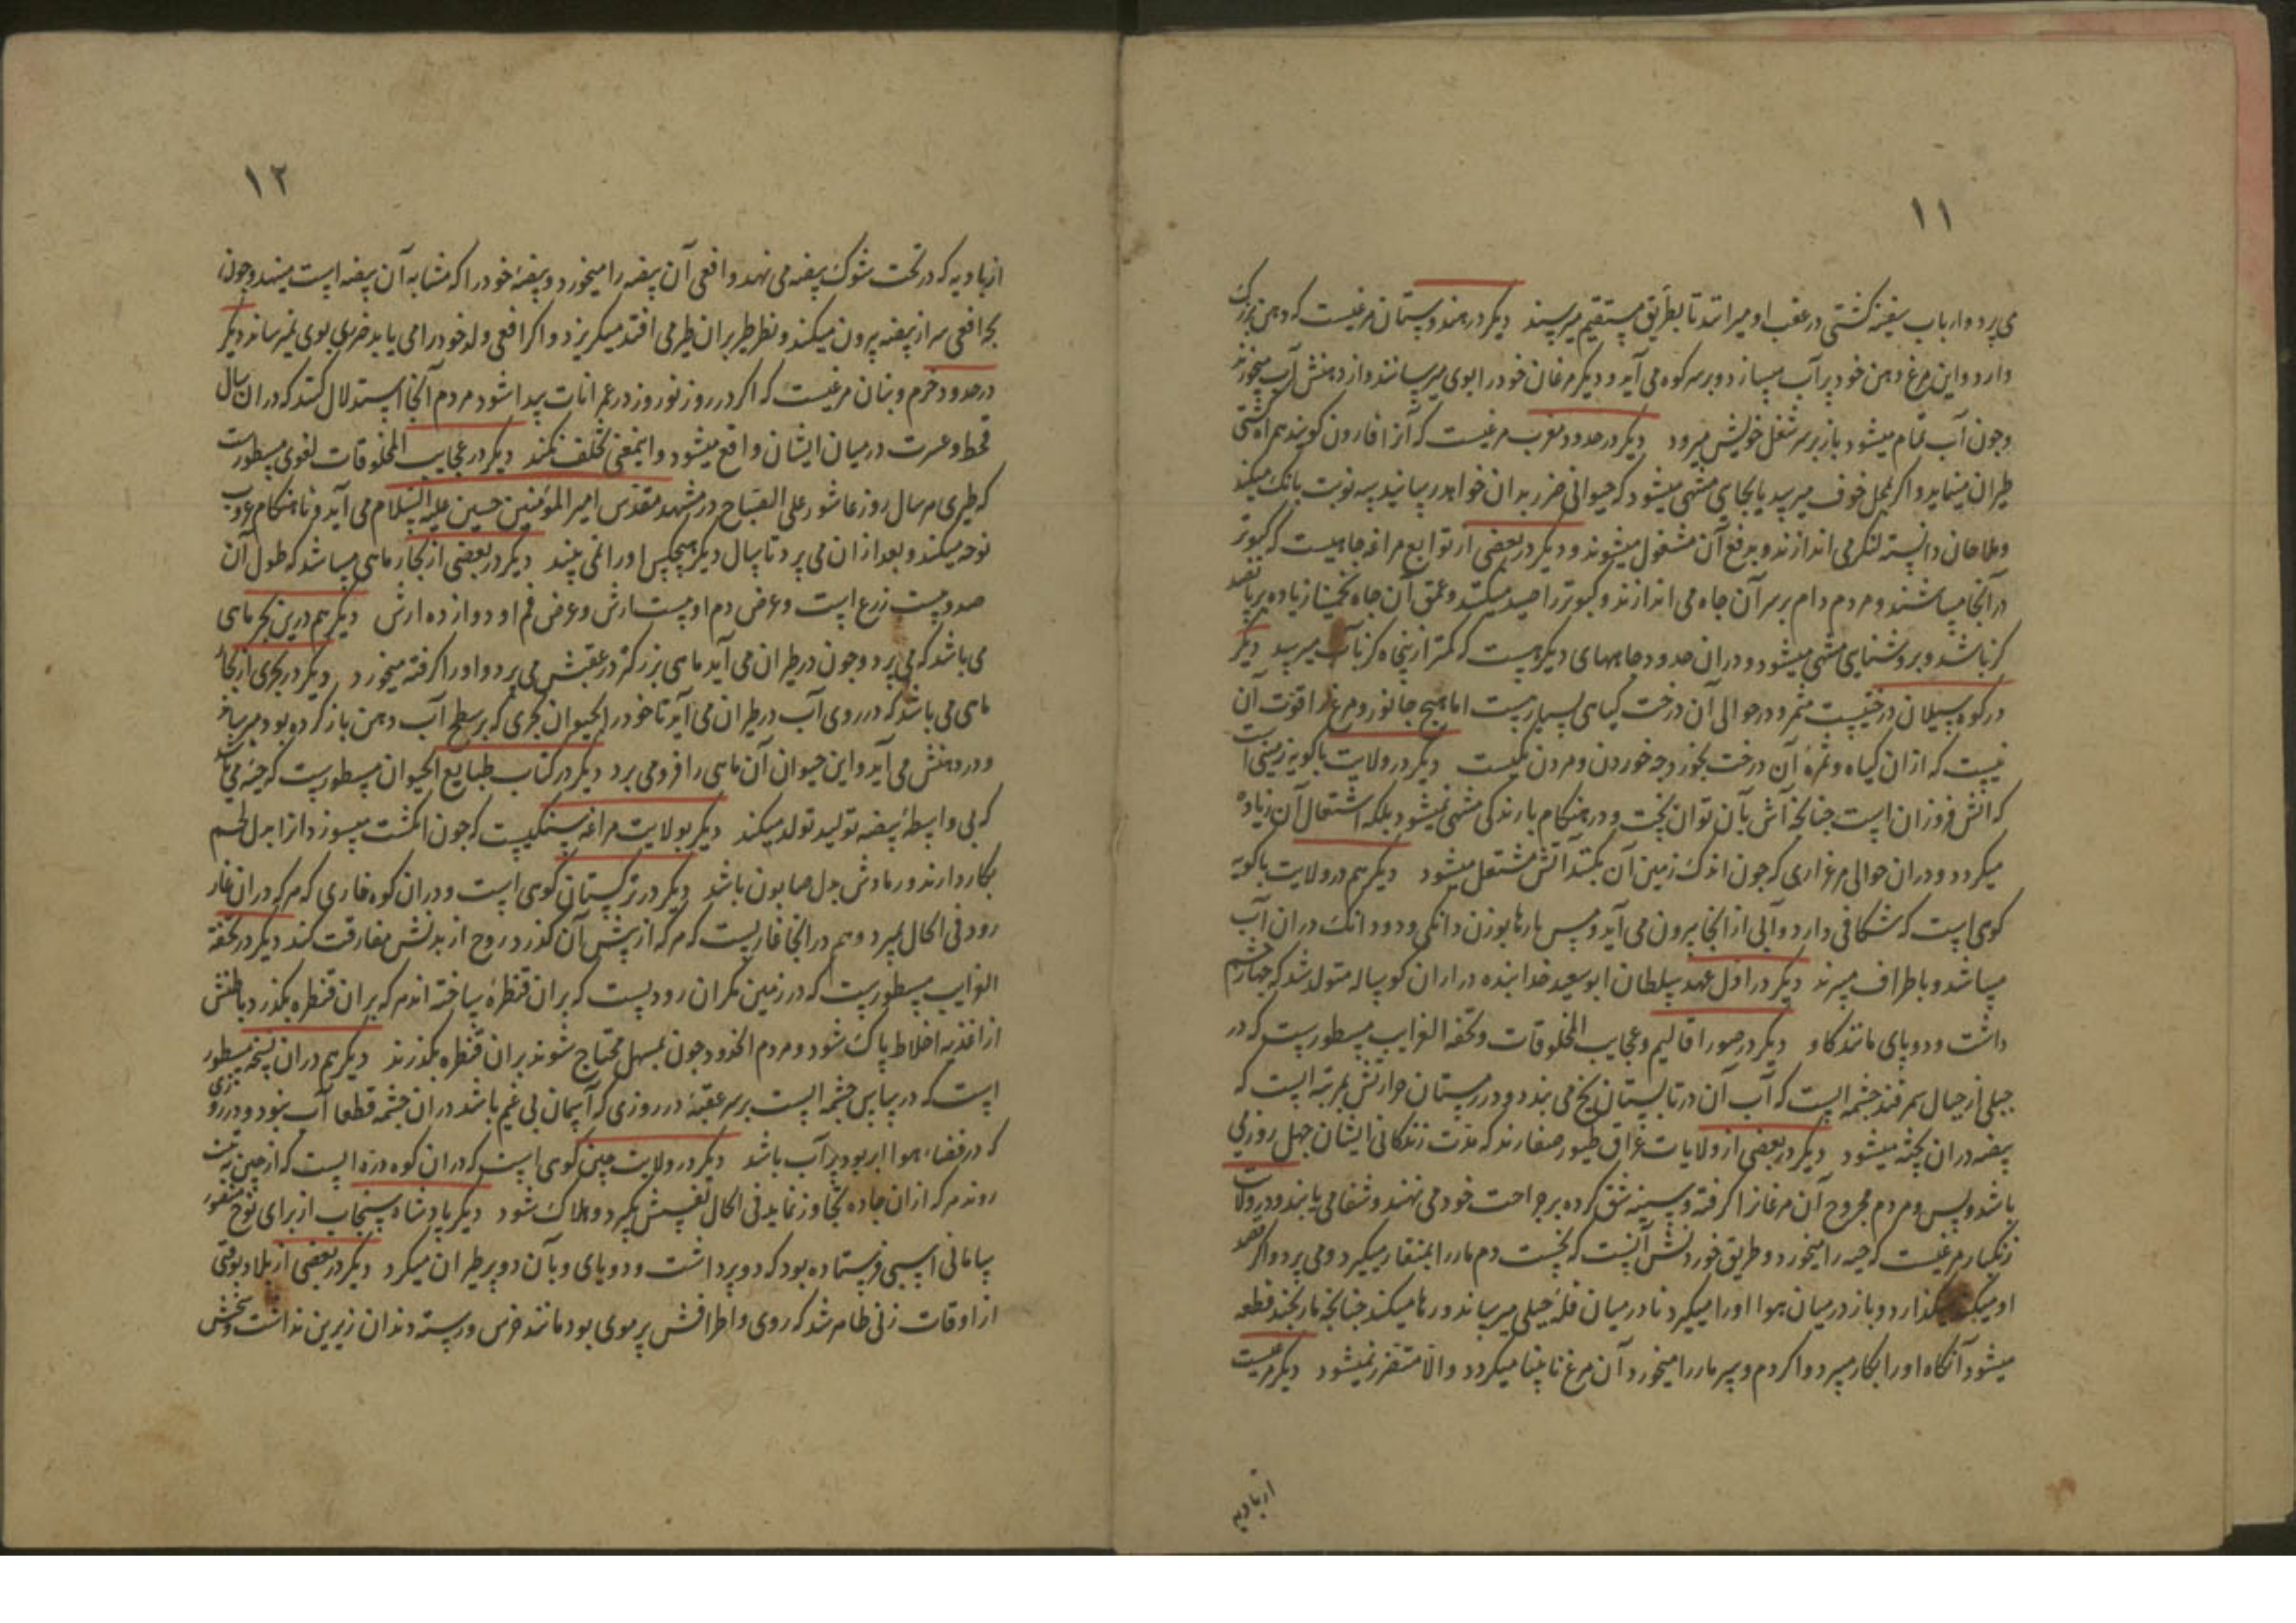 ۱۱
می‌پرد و ارباب سفینه کشتی در عقب او میرانند تا بطریق مستقیم میرسند دیکر در هندوستان مرغیست که دهن بزرک
دارد و این مرغ دهن خود پر آب میسازد و بر سر کوه می‌آید و دیکر مرغان خود را بوی میرسانند و از دهنش آب میخورند
و چون آب تمام میشود باز بر سر شغل خویش میرود دیکر در حدود مغرب مرغیست که آنرا قارون کویند همراه کشتی
طیران مینماید و اکر بمحل خوف میرسد یا بجای منتهی میشود که حیوانی ضرر بدان خواهد رسانید سه نوبت بانک میکند
و ملاحان دانسته لنکر می اندازند و بدفع آن مشغول میشوند و دیکر در بعضی از توابع مراغه چاهیست که کبوتر
در آنجا میباشند و مردم دام بر سر آن چاه می اندازند و کبوتر را صید میکنند و عمق آن چاه تخمینا زیاده بر پانصد
کز باشد و بروشنایی منتهی میشود و در ان حدود چاههای دیکر هست که کمتر از پنجاه کز بآب میرسد دیکر
در کوه سیلان درختیست مثمر و در حوالی آن درخت کیاهی بسیارست اما هیچ جانور و مرغ را قوت آن
نیست که از ان کیاه و ثمره آن درخت بخورد چه خوردن و مردن یکیست دیکر در ولایت باکویه زمینی است
که آتش فروزان است چنانچه آش بآن توان پخت و در هنکام بارندکی منتهی نمیشود بلکه اشتعال آن زیاده
میکردد و در ان حوالی مرغزاری که چون اندک زمین آن بکنند آتش مشتعل میشود دیکر هم در ولایت باکویه
کوهی است که شکافی دارد و آبی از انجا بیرون می‌آید و مس پارها بوزن دانکی و دو دانک در ان آب
میباشد و باطراف میبرند دیکر در اول عهد سلطان ابو سعید خدابنده در اران کوساله متولد شد که چهار چشم
داشت و دو پای مانند کاو دیکر در صور اقالیم و عجایب المخلوقات و تحفه الغرایب مسطورست که در
جبلی از جبال سمرقند چشمه ایست که آب آن در تابستان یخ می بندد و در زمستان حرارتش بمرتبه ایست که
بیضه در ان پخته میشود دیکر در بعضی از ولایات عراق طیور صغارند که مدت زندکانی ایشان چهل روز
باشد و بس و مردم مجروح آن مرغانرا کرفته و سینه شق کرده بر جراحت خود می نهند و شفا می یابند و در ولایت
زنکبار مرغیست که حیه را میخورد و طریق خوردنش آنست که نخست دم مار را بمنقار میکیرد و می پرد و اکر قصد
او میکند میکذارد و باز در میان هوا او را میکیرد تا در میان قله جبلی میرساند و رها میکند چنانچه مار بچند قطعه
میشود آنکاه او را بکار میبرد و اکر دم و سر مار را میخورد آن مرغ نابینا میکردد و الا متضرر نمیشود دیکر مرغیست
از بادیه
۱۲
از بادیه که در تحت شوک بیضه می نهد و افعی آن بیضه را میخورد و بیضهٔ خود را که مشابه آن بیضه است مینهد و چون
بچه افعی سر از بیضه بیرون میکند و نظر طیر بران طیر می افتد میکریزد و اکر افعی ولد خود را می یابد ضرری بوی نمیرساند دیکر
در حدود خرم و بنان مرغیست که اکر در روز نوروز در عمرانات پیدا شود مردم آنجا استدلال کنند که در ان سال
قحط و عسرت در میان ایشان واقع میشود و اینمعنی تخلف نکند دیکر در عجایب المخلوقات لغوی مسطورست
که طیری هر سال روز عاشور علی الصباح در مشهد مقدس امیر المؤمنین حسین علیه السلام می آید و تا هنکام غروب
نوحه میکند و بعد از ان می پرد تا سال دیکر هیچکس او را نمی بیند دیکر در بعضی از بحار ماهی میباشد که طول آن
صد و بیست زرع است و عرض دم او بیست ارش و عرض فم او دوازده ارش دیکر هم درین بحر ماهی
می باشد که می پرد و چون در طیران می آید ماهی بزرکتر در عقبش می پرد و او را کرفته میخورد دیکر در بحری از بحار
ماهی می باشد که در روی آب در طیران می آید تا خود را بحیوان بحری که بر سطح آب دهن باز کرده بود میرساند
و در دهنش می آید و این حیوان آن ماهی را فرو می برد دیکر در کتاب طبایع الحیوان مسطورست که حیه می باشد
که بی واسطهٔ بیضه تولید تولد میکند دیکر بولایت مراغه سنکیست که چون انکشت میسوزد و انرا بدل لحم
بکار دارند و رمادش بدل صابون باشد دیکر در ترکستان کوهی است و در ان کوه غاری که هر که در ان غار
رود فی الحال بمیرد و هم در انجا غاریست که هر که از پیش آن کذرد روح از بدنش مفارقت کند دیکر در تحفة
الغرایب مسطورست که در زمین مکران رودیست که بران قنطرهٔ ساخته اند هر که بران قنطره بکذرد باطنش
از اغذیه اخلاط پاک شود و مردم انحدود چون بمسهل محتاج شوند بران قنطره بکذرند دیکر هم در ان نسخه مسطور
است که در بیابس چشمه ایست بر سر عقبهٔ در روزی که آسمان بی غیم باشد در ان چشمه قطعا آب نبود و در روزی
که در فضاء هوا ابر بود پر آب باشد دیکر در ولایت چین کوهی است که در ان کوه دره ایست که از چین به تبت
روند هر که از ان جاده تجاوز نماید فی الحال نفسش بکیرد و هلاک شود دیکر پادشاه سنجاب از برای نوح منصور
سامانی اسبی فرستاده بود که دو پر داشت و دو پای و بآن دو پر طیران میکرد دیکر در بعضی از بلاد بوقتی
از اوقات زنی ظاهر شد که روی و اطرافش پر موی بود مانند خرس و رسته دندان زیرین نداشت و سخنش